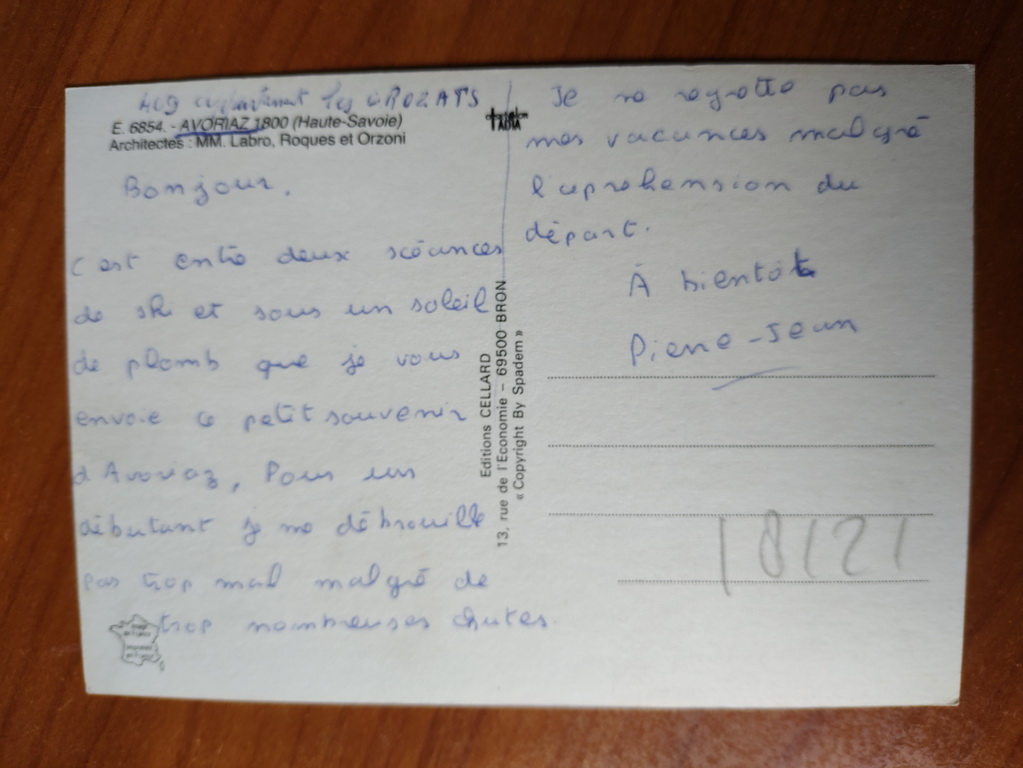 409 appartement les CROZATS
E. 6854. - AVORIAZ 1800 (Haute-Savoie)
Architectes : MM. Labro, Roques et Orzoni
Bonjour,
C'est entre deux séances
de ski et sous un soleil
de plomb que je vous
envoie ce petit souvenir
d'Avoriaz, Pour un
débutant je me débrouille
pas trop mal malgré de
trop nombreuses chutes.
Editions CELLARD
13, rue de l'Economie - 69500 BRON
« Copyright By Spadem »
Je ne regrette pas
mes vacances malgré
l'apréhension du
départ.
À bientôt
Pierre-Jean
18121